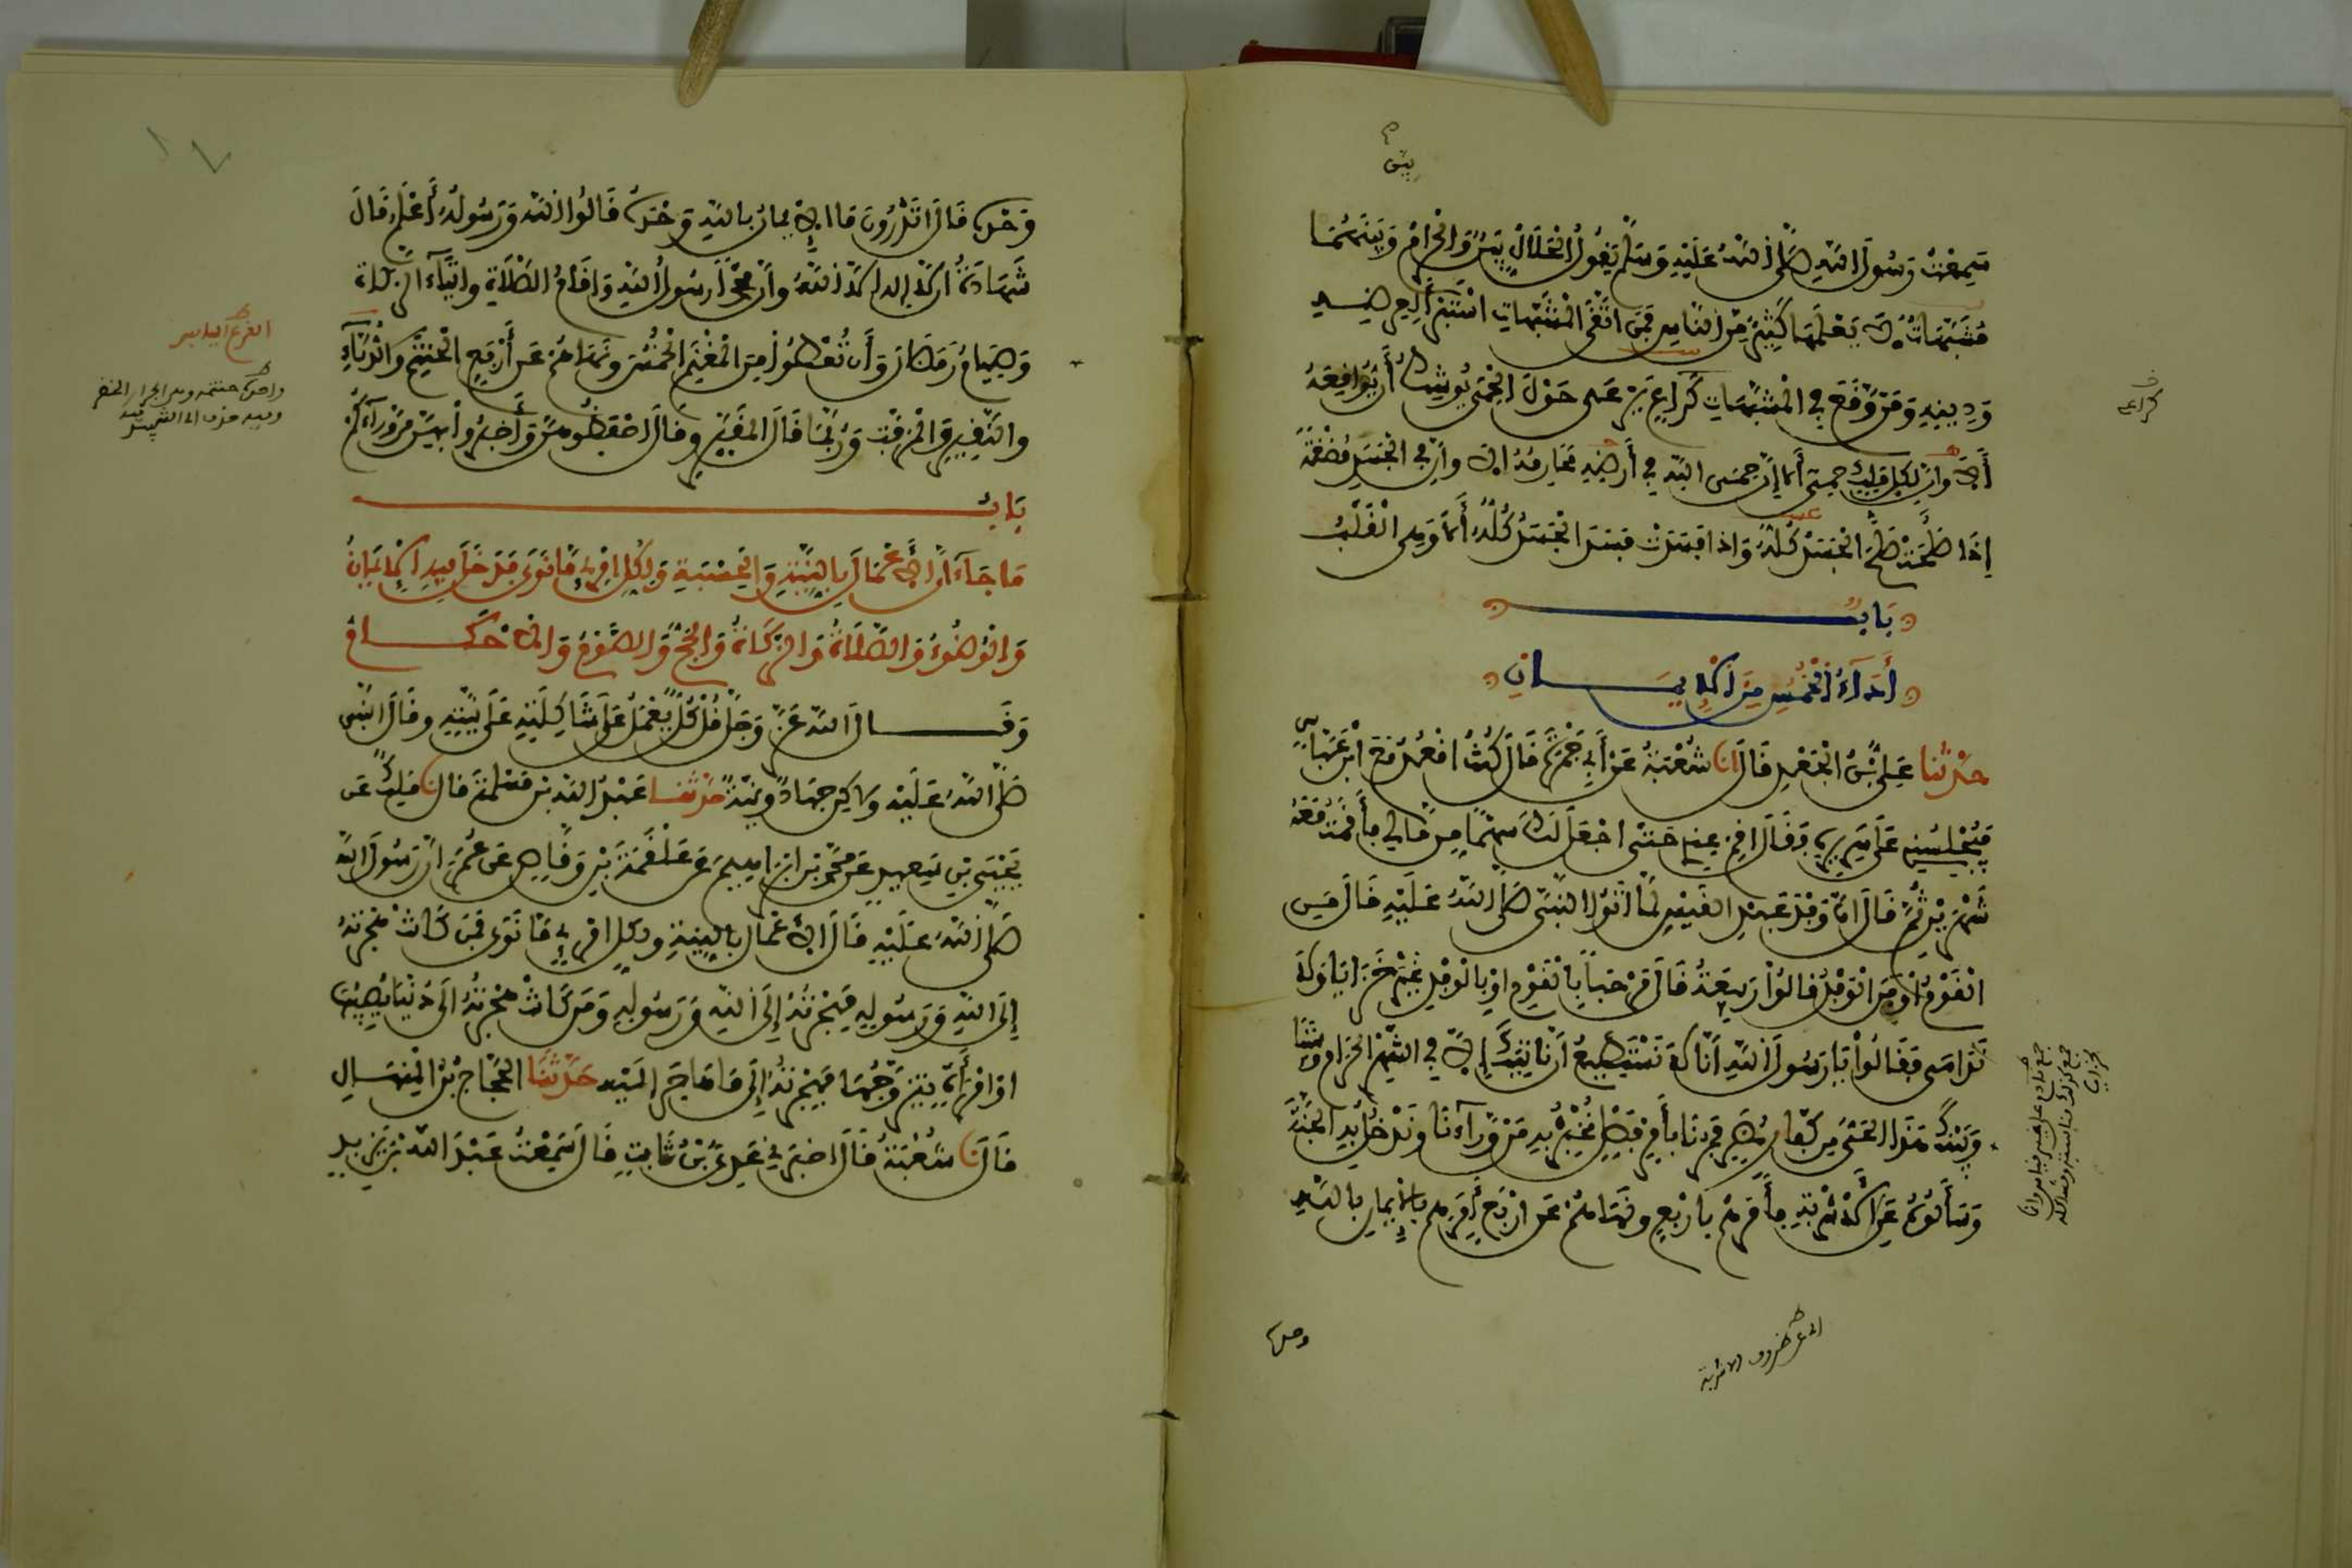 سَمِعْتُ رَسُولَ اللَّهِ صَلَّى اللَّهُ عَلَيْهِ وَسَلَّمَ يَقُولُ الْحَلَالُ بَيِّنٌ وَالْحَرَامُ وَبَيْنَهُمَا
مُشَبَّهَاتٌ لَا يَعْلَمُهَا كَثِيرٌ مِنَ النَّاسِ فَمَنِ اتَّقَى الْمُشَبَّهَاتِ اسْتَبْرَأَ لِعِرْضِهِ
وَدِينِهِ وَمَنْ وَقَعَ فِي الْمُشَبَّهَاتِ كَرَاعٍ يَرْعَى حَوْلَ الْحِمَى يُوشِكُ أَنْ يُوَاقِعَهُ
أَلَا وَإِنَّ لِكُلِّ مَلِكٍ حِمًى أَلَا إِنَّ حِمَى اللَّهِ فِي أَرْضِهِ مَحَارِمُهُ أَلَا وَإِنَّ فِي الْجَسَدِ مُضْغَةً
إِذَا صَلَحَتْ صَلَحَ الْجَسَدُ كُلُّهُ وَإِذَا فَسَدَتْ فَسَدَ الْجَسَدُ كُلُّهُ أَلَا وَهِيَ الْقَلْبُ
بَابٌ
أَدَاءُ الْخُمُسِ مِنَ الْإِيمَانِ
حَدَّثَنَا عَلِيُّ بْنُ الْجَعْدِ قَالَ أَنَا شُعْبَةُ عَنْ أَبِي جَمْرَةَ قَالَ كُنْتُ أَقْعُدُ مَعَ ابْنِ عَبَّاسٍ
فَيُجْلِسُنِي عَلَى سَرِيرِهِ فَقَالَ أَقِمْ عِنْدِي حَتَّى أَجْعَلَ لَكَ سَهْمًا مِنْ مَالِي فَأَقَمْتُ مَعَهُ
شَهْرَيْنِ ثُمَّ قَالَ إِنَّ وَفْدَ عَبْدِ الْقَيْسِ لَمَّا أَتَوُا النَّبِيَّ صَلَّى اللَّهُ عَلَيْهِ قَالَ مَنِ
الْقَوْمُ أَوْ مَنِ الْوَفْدُ قَالُوا رَبِيعَةُ قَالَ مَرْحَبًا بِالْقَوْمِ أَوْ بِالْوَفْدِ غَيْرَ خَزَايَا وَلَا
نَدَامَى فَقَالُوا يَا رَسُولَ اللَّهِ إِنَّا لَا نَسْتَطِيعُ أَنْ نَأْتِيَكَ إِلَّا فِي الشَّهْرِ الْحَرَامِ وَبَيْنَنَا
وَبَيْنَكَ هَذَا الْحَيُّ مِنْ كُفَّارِ مُضَرَ فَمُرْنَا بِأَمْرٍ فَصْلٍ نُخْبِرْ بِهِ مَنْ وَرَاءَنَا وَنَدْخُلْ بِهِ الْجَنَّةَ
وَسَأَلُوهُ عَنِ الْأَشْرِبَةِ فَأَمَرَهُمْ بِأَرْبَعٍ وَنَهَاهُمْ عَنْ أَرْبَعٍ أَمَرَهُمْ بِالْإِيمَانِ بِاللَّهِ
وحده
وَحْدَهُ قَالَ أَتَدْرُونَ مَا الْإِيمَانُ بِاللَّهِ وَحْدَهُ قَالُوا اللَّهُ وَرَسُولُهُ أَعْلَمُ قَالَ
شَهَادَةُ أَنْ لَا إِلَهَ إِلَّا اللَّهُ وَأَنَّ مُحَمَّدًا رَسُولُ اللَّهِ وَإِقَامُ الصَّلَاةِ وَإِيتَاءُ الزَّكَاةِ
وَصِيَامُ رَمَضَانَ وَأَنْ تُعْطُوا مِنَ الْمَغْنَمِ الْخُمُسَ وَنَهَاهُمْ عَنْ أَرْبَعٍ الْحَنْتَمِ وَالدُّبَّاءِ
وَالنَّقِيرِ وَالْمُزَفَّتِ وَرُبَّمَا قَالَ الْمُقَيَّرِ وَقَالَ احْفَظُوهُنَّ وَأَخْبِرُوا بِهِنَّ مَنْ وَرَاءَكُمْ
بَابُ
مَا جَاءَ أَنَّ الْأَعْمَالَ بِالنِّيَّةِ وَالْحِسْبَةِ وَلِكُلِّ امْرِئٍ مَا نَوَى فَدَخَلَ فِيهِ الْإِيمَانُ
وَالْوُضُوءُ وَالصَّلَاةُ وَالزَّكَاةُ وَالْحَجُّ وَالصَّوْمُ وَالْأَحْكَامُ
وَقَالَ اللَّهُ عَزَّ وَجَلَّ قُلْ كُلٌّ يَعْمَلُ عَلَى شَاكِلَتِهِ عَلَى نِيَّتِهِ وَقَالَ النَّبِيُّ
صَلَّى اللَّهُ عَلَيْهِ وَلَكِنْ جِهَادٌ وَنِيَّةٌ حَدَّثَنَا عَبْدُ اللَّهِ بْنُ مَسْلَمَةَ قَالَ نَا مَلِكٌ عَن
يَحْيَى بْنِ سَعِيدٍ عَنْ مُحَمَّدِ بْنِ إِبْرَاهِيمَ عَنْ عَلْقَمَةَ بْنِ وَقَّاصٍ عَنْ عُمَرَ أَنَّ رَسُولَ اللَّهِ
صَلَّى اللَّهُ عَلَيْهِ قَالَ الْأَعْمَالُ بِالنِّيَّةِ وَلِكُلِّ امْرِئٍ مَا نَوَى فَمَنْ كَانَتْ هِجْرَتُهُ
إِلَى اللَّهِ وَرَسُولِهِ فَهِجْرَتُهُ إِلَى اللَّهِ وَرَسُولِهِ وَمَنْ كَانَتْ هِجْرَتُهُ إِلَى دُنْيَا يُصِيبُهَا
أَوِ امْرَأَةٍ يَتَزَوَّجُهَا فَهِجْرَتُهُ إِلَى مَا هَاجَرَ إِلَيْهِ حَدَّثَنَا الْحَجَّاجُ بْنُ الْمِنْهَالِ
قَالَ نَا شُعْبَةُ قَالَ أَخْبَرَنِي عَدِيُّ بْنُ ثَابِتٍ قَالَ سَمِعْتُ عَبْدَ اللَّهِ بْنَ يَزِيدَ